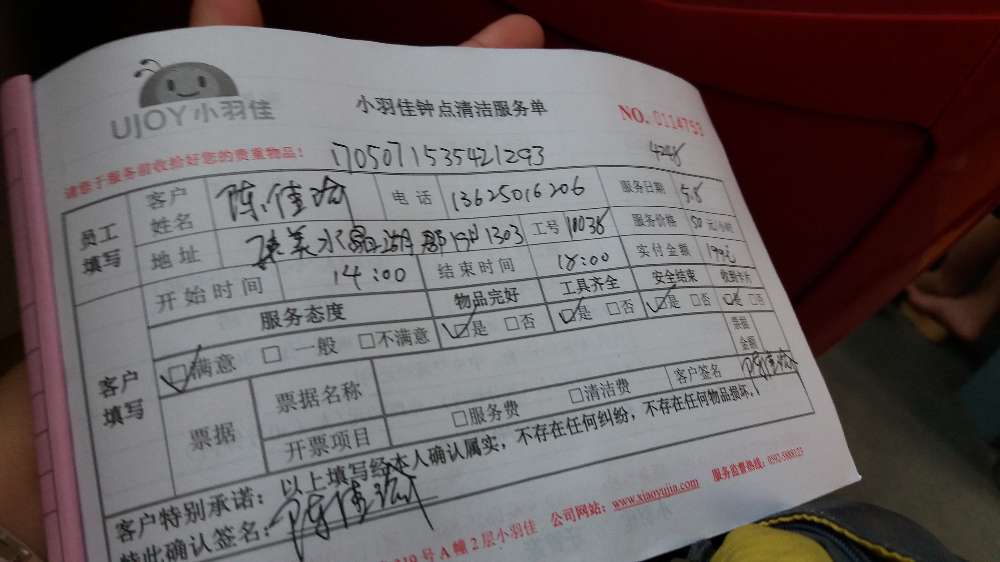 UJOY小羽佳
小羽佳钟点清洁服务单
NO. 0114753
请您于服务前收拾好您的贵重物品!
1705071535421293
4248
员工填写
客户姓名 陈佳 电话 13625016206 服务日期 5.8
地址 水晶湖郡 1303 工号 11038 服务价格 50 元/小时
开始时间 14:00 结束时间 18:00 实付金额
客户填写
服务态度 物品完好 工具齐全 安全结束 收到卡片
☑满意 □一般 □不满意 ☑是 □否 ☑是 □否 ☑是 □否 ☑是 □否
票据 票据名称 票据金额
开票项目 □服务费 □清洁费 客户签名
客户特别承诺:以上填写经本人确认属实,不存在任何纠纷,不存在任何物品损坏,
特此确认签名:
号A幢2层小羽佳 公司网站:www.xiaoyujia.com 服务监督热线: